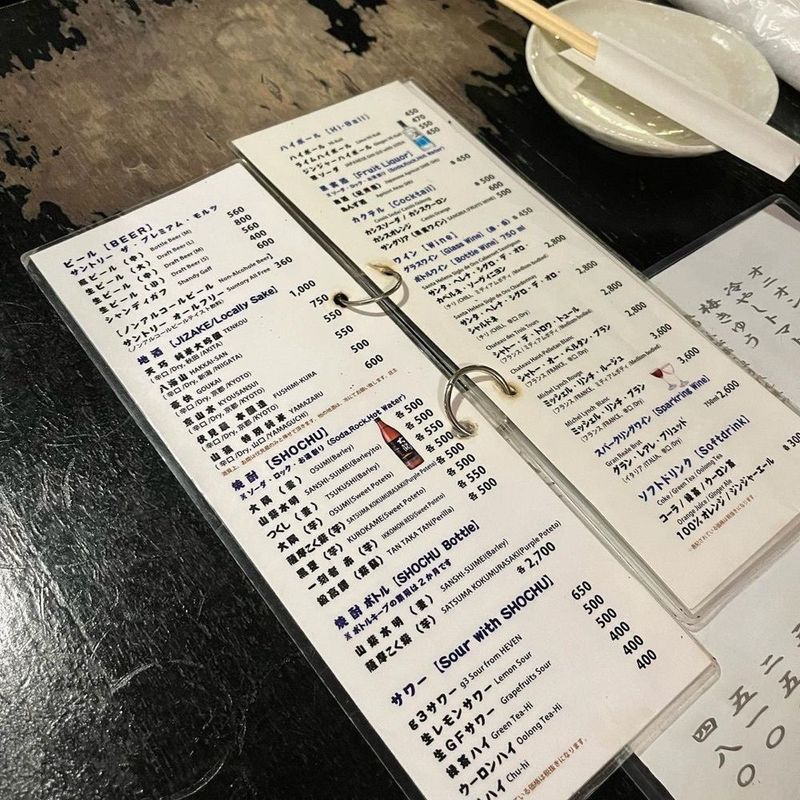 ビール [BEER]
サントリー ザ・プレミアム・モルツ
Bottle Beer (M) 560
Draft Beer (L) 800
生ビール (中) Draft Beer (M) 560
生ビール (小) Draft Beer (S) 400
シャンディガフ Shandy Gaff 600
[ノンアルコールビール Non Alcohole Beer]
サントリー オールフリー Suntory All Free 360
(ノンアルコールビールテイスト飲料)
地酒 [JIZAKE/Locally Sake]
天巧 純米大吟醸 TENKOU 1,000
(辛口/Dry, 秋田/AKITA)
八海山 HAKKAI-SAN 750
(辛口/Dry, 新潟/NIIGATA)
豪快 GOUKAI 550
(辛口/Dry, 京都/KYOTO)
京山水 KYOUSANSUI 550
(辛口/Dry, 京都/KYOTO)
伏見蔵 本醸造 FUSHIMI-KURA 500
(辛口/Dry, 京都/KYOTO)
山猿 特別純米 YAMAZARU 600
(辛口/Dry, 山口/YAMAGUCHI)
焼酎 [SHOCHU]
※ソーダ・ロック・お湯割り (Soda,Rock,Hot Water)
大隅 (麦) OSUMI(Barley) 各 500
山翠水明 (麦) SANSHI-SUIMEI(Barley) 各 500
つくし (麦) TSUKUSHI(Barley) 各 550
大隅 (芋) OSUMI(Sweet Poteto) 各 500
薩摩こく紫 (芋) SATSUMA KOKUMURASAKI(Purple Poteto) 各 500
黒甕 (芋) KUROKAME(Sweet Poteto) 各 500
一刻者 赤 (芋) IKKOMON RED(Sweet Poteto) 各 550
鍛高譚 (紫蘇) TAN TAKA TAN(Perilla) 各 500
焼酎ボトル [SHOCHU Bottle]
※ボトルキープの期限は2か月です
山紫水明 (麦) SANSHI-SUIMEI(Barley)
薩摩こく紫 (芋) SATSUMA KOKUMURASAKI(Purple Poteto)
各 2,700
サワー [Sour with SHOCHU]
g3サワー g3 Sour from HEVEN 650
生レモンサワー Lemon Sour 500
生GFサワー Grapefruits Sour 500
緑茶ハイ Green Tea-Hi 400
ウーロンハイ Oolong Tea-Hi 400
ハイ Chu-hi 400
ハイボール [Hi-Ball]
ハイボール 450
ライムハイボール 470
ジンジャーハイボール 550
450
果実酒 [Fruit Liquor]
※ソーダ・ロック・お湯割り (Soda,Rock,Hot Water)
梅酒
あんず酒
各 450
カクテル [Cocktail]
カシスソーダ / カシスウーロン
カシスオレンジ
各 500
サングリア (果実ワイン) 600
ワイン [Wine]
グラスワイン [Glass Wine] (赤・白) 各 450
ボトルワイン [Bottle Wine] 750 ml
サンタ・ヘレナ・シグロ・デ・オロ・
カベルネ・ソーヴィニヨン 2,800
サンタ・ヘレナ・シグロ・デ・オロ・
シャルドネ 2,800
Chateau des Trois Tours
シャトー・デ・トロワ・トゥール 2,800
Chateau Haut Pelletan Blanc
シャトー・オー・ペルタン・ブラン 2,800
Michel Lynch Rouge
ミッシェル・リンチ・ルージュ 3,600
Michel Lynch Blanc
ミッシェル・リンチ・ブラン 3,600
スパークリングワイン [Sparkring Wine]
Gran Reale Brut
グラン・レアレ・ブリュット 750ml 2,600
(イタリア/ITALIA, 辛口/Dry)
ソフトドリンク [Softdrink]
Coke / Green Tea / Oolong Tea
コーラ / 緑茶 / ウーロン茶
Orange Juice / Ginger Ale
100%オレンジ / ジンジャーエール
各 300
オニオン
冷やしトマト
梅きゅう
五一〇
四八〇